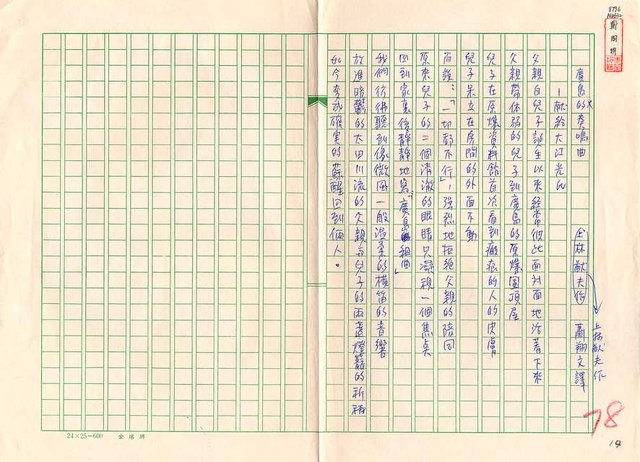 廣島的奏鳴曲
—獻給大江光氏
上林猷夫作
上林猷夫作 蕭翔文譯
父親自兒子誕生以來經常彼此面對面地活著下來
父親帶体弱的兒子到廣島的原爆圓頂屋
兒子在原爆資料館首次看到瘢痕的人的皮膚
兒子呆立在房間的外面不動
而說：「一切都不行」，強烈地拒絕父親的陪同
原來兒子的二個清澈的眼睛只凝視一個焦點
回到家裏後靜靜地寫「廣島組曲」
我們彷彿聽到像微風一般溫柔的橫笛的音響
放進暗鬱的太田川流的父親與兒子的兩盞燈籠的祈禱
如今夸示確實的蘇醒回到個人。
78
14
24×25=600